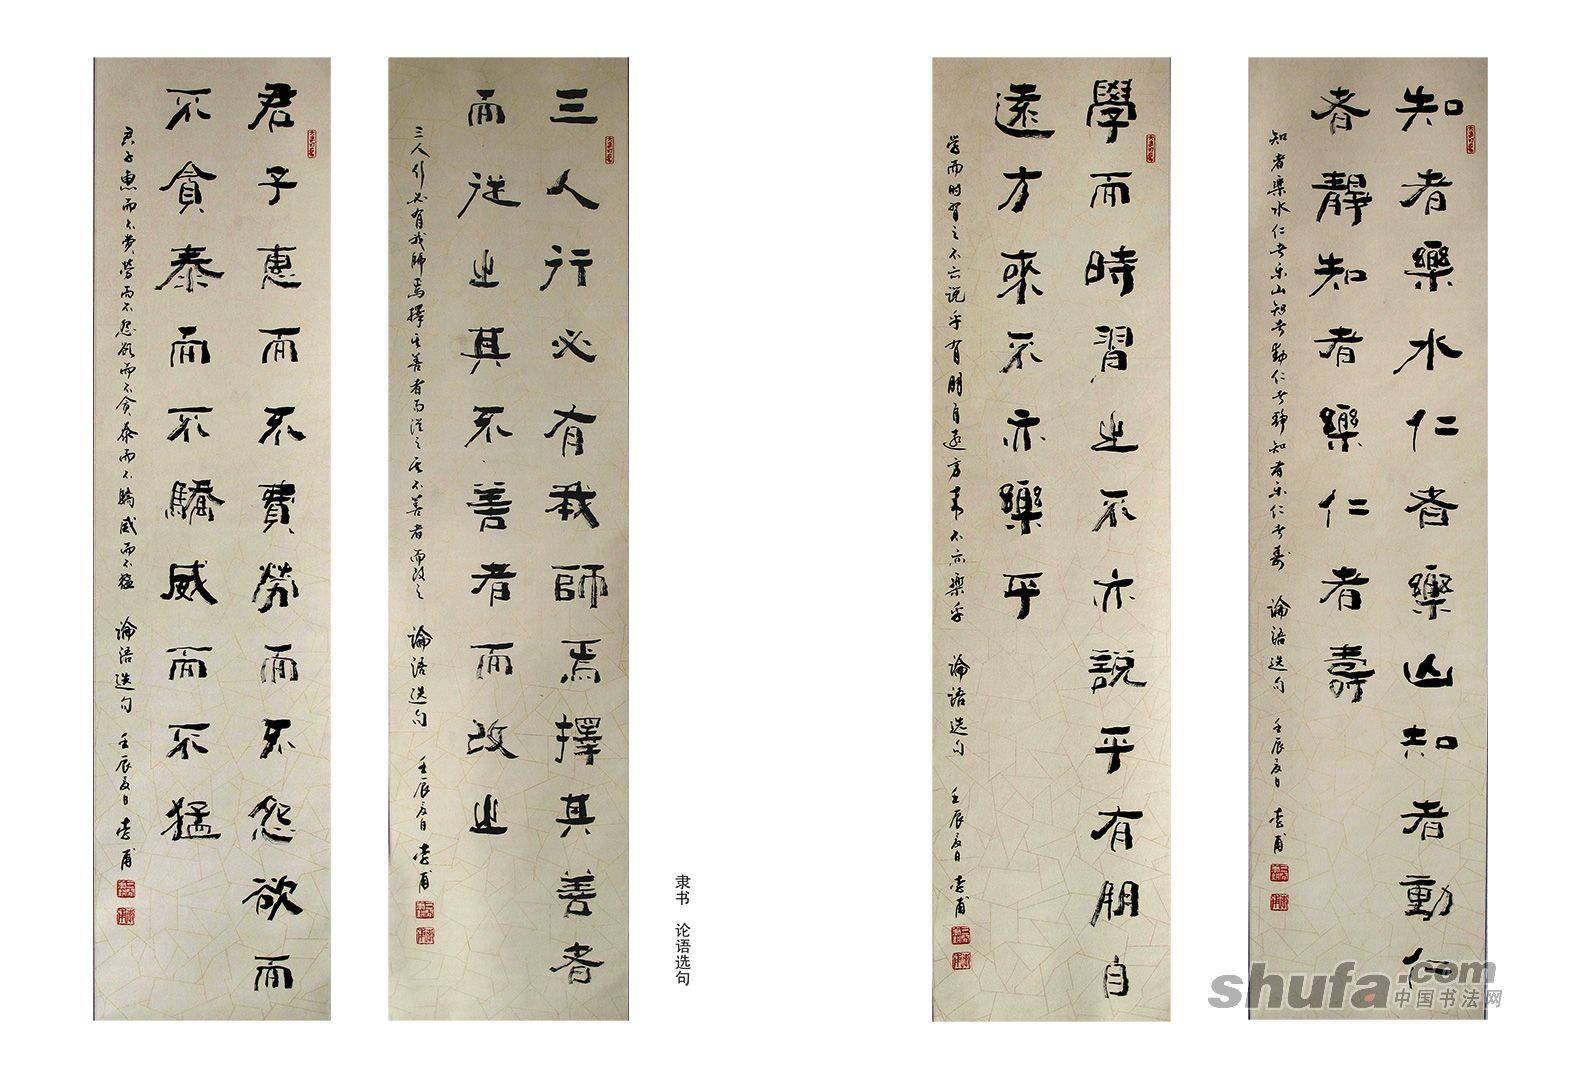 知者樂水仁者樂山知者動仁
者靜知者樂仁者壽
知者樂水仁者乐山知者動仁者静知者乐仁者寿 論語选句 壬辰夏日 甫
學而時習之不亦說乎有朋自
遠方來不亦樂乎
学而时習之不亦说乎有朋自遠方來不亦樂乎 論語选句 壬辰夏日 甫
三人行必有我師焉擇其善者
而從之其不善者而改之
三人行必有我師焉擇其善者而從之其不善者而改之 論語选句 壬辰夏日 甫
君子惠而不費勞而不怨欲而
不貪泰而不驕威而不猛
君子惠而不費勞而不怨欲而不貪泰而不驕威而不猛 論語选句 壬辰夏日 甫
隶书 论语选句
shufa.com
中国书法网